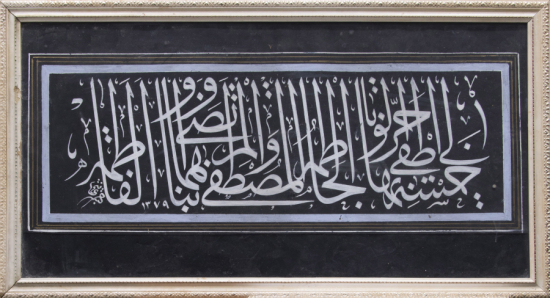 لي خمسة اطفي بها حر الوبا الحاطمة المصطفى والمرتضى وابناهما والفاطمة
١٣٧٩